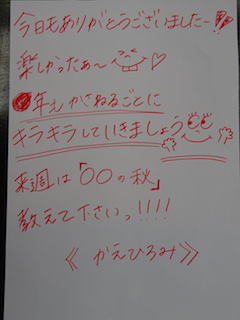 今日もありがとうございましたー!!
楽しかったぁ〜♡
●年をかさねるごとに
キラキラしていきましょう
来週は「〇〇の秋」
教えて下さいっ!!!!
《かえひろみ》